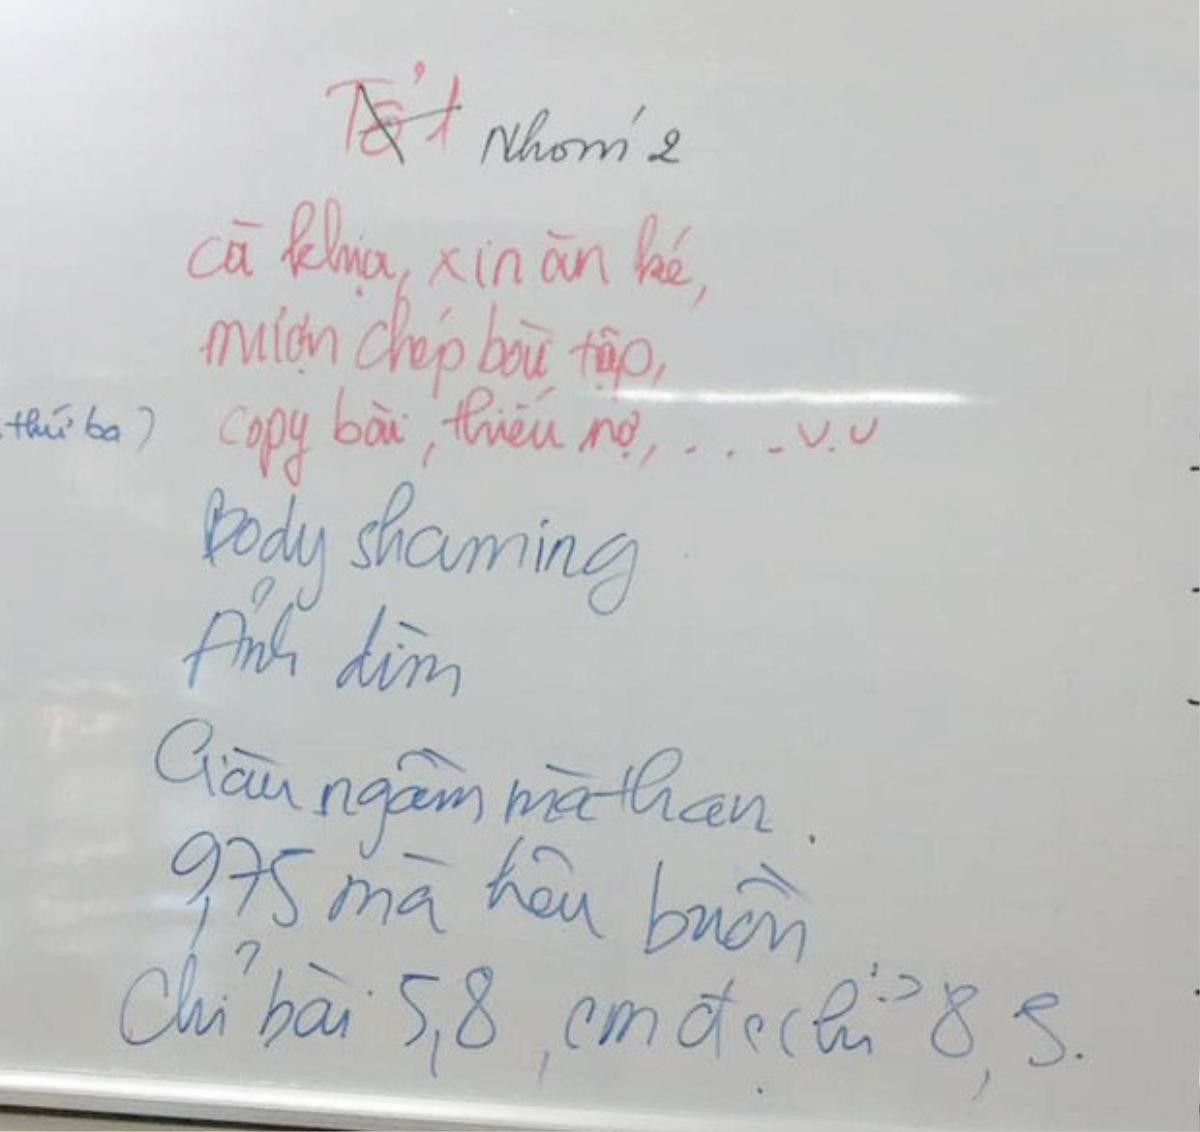 Tổ 1 Nhóm 2
cà khịa, xin ăn ké,
mượn chép bài tập,
thứ ba) copy bài, thiếu nợ, . . . . v.v
Body shaming
Ảnh dìm
Giàu ngầm mà than.
9,75 mà kêu buồn
Chỉ bài 5,8, cm đc chỉ 8,5.